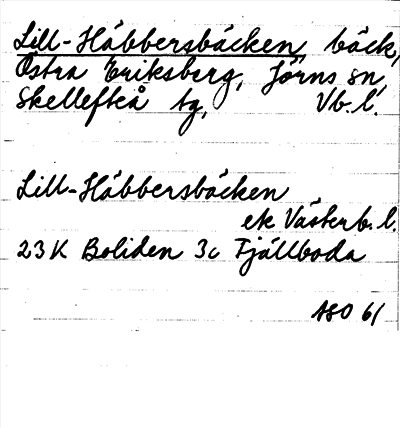 Lill-Häbbersbäcken, bäck,
Östra Eriksberg, Jörns sn,
Skellefteå tg, Vb. l.
Lill-Häbbersbäcken
ek Västerb. l.
23K Boliden 3c Fjällboda
ASO 61